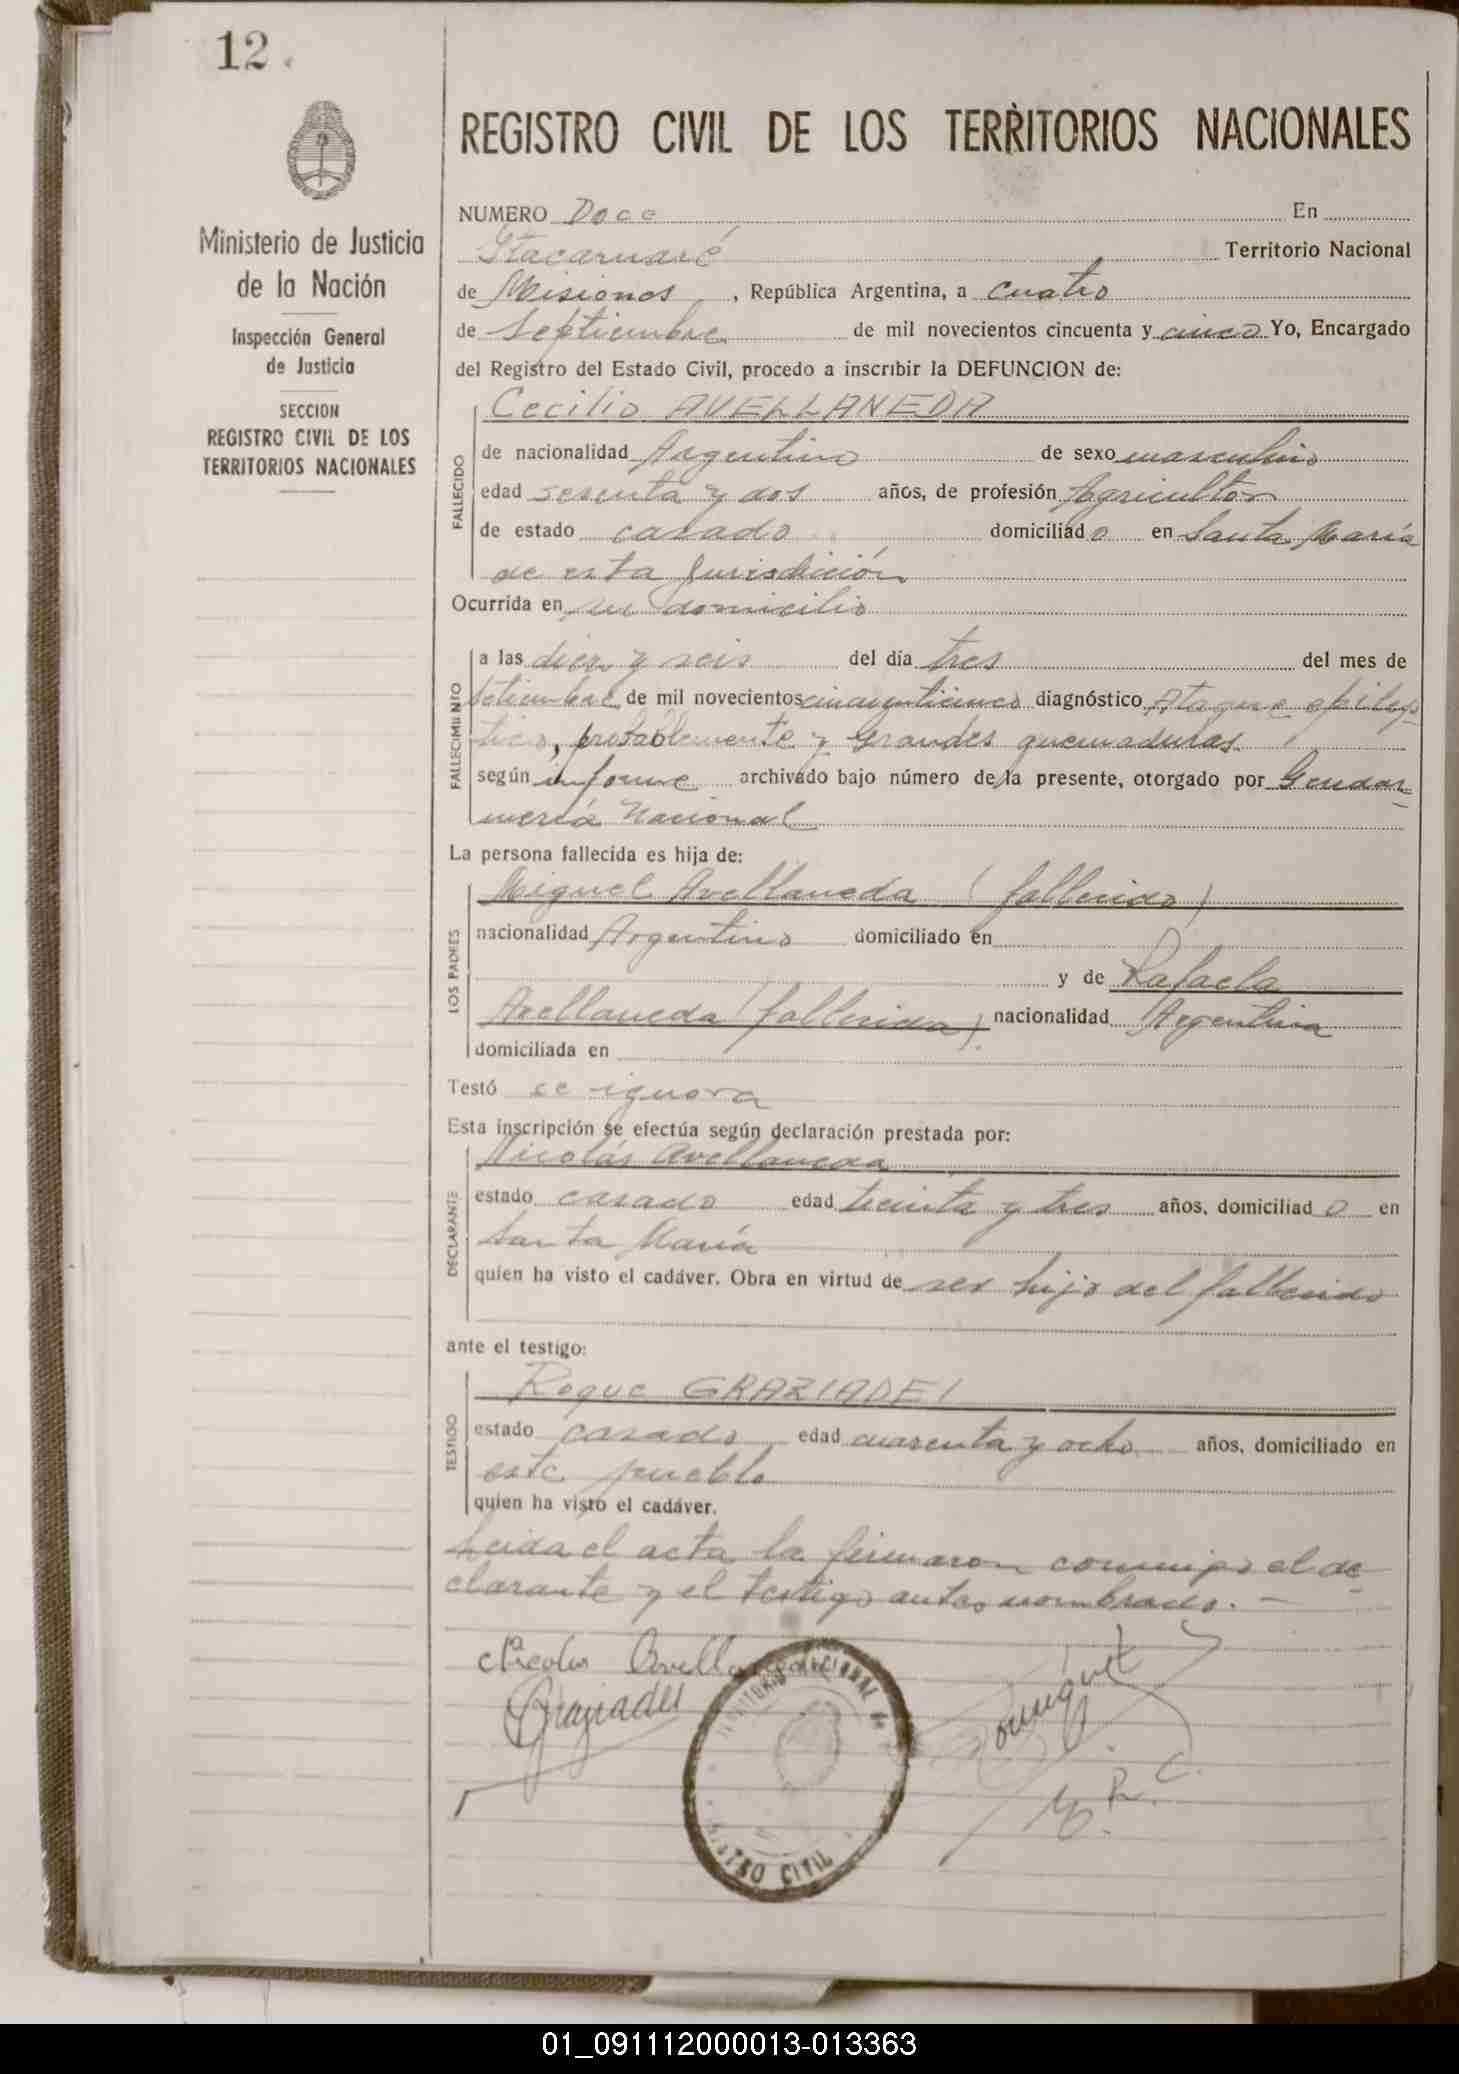 12.
Ministerio de Justicia
de la Nación
Inspección General
de Justicia
SECCION
REGISTRO CIVIL DE LOS
TERRITORIOS NACIONALES
REGISTRO CIVIL DE LOS TERRITORIOS NACIONALES
NUMERO Doce En
Itacaruaré Territorio Nacional
de Misiones, República Argentina, a cuatro
de Septiembre de mil novecientos cincuenta y cinco Yo, Encargado
del Registro del Estado Civil, procedo a inscribir la DEFUNCION de:
FALLECIDO
Cecilio AVELLANEDA
de nacionalidad Argentino de sexo masculino
edad sesenta y dos años, de profesión Agricultor
de estado casado domiciliado en Santa María
de esta Jurisdicción
Ocurrida en su domicilio
FALLECIMIENTO
a las diez y seis del día tres del mes de
setiembre de mil novecientos cincuenticinco diagnóstico Ataque epilep-
tico, probablemente y Grandes quemaduras
según informe archivado bajo número de la presente, otorgado por Gendar-
mería Nacional
La persona fallecida es hija de:
LOS PADRES
Miguel Avellaneda (fallecido)
nacionalidad Argentino domiciliado en
y de Rafaela
Avellaneda (fallecida) nacionalidad Argentina
domiciliada en
Testó se ignora
Esta inscripción se efectúa según declaración prestada por:
DECLARANTE
Nicolás Avellaneda
estado casado edad treinta y tres años, domiciliado en
Santa María
quien ha visto el cadáver. Obra en virtud de ser hijo del fallecido
ante el testigo:
TESTIGO
Roque GRAZIADEI
estado casado edad cuarenta y ocho años, domiciliado en
este pueblo
quien ha visto el cadáver.
Leida el acta la firmaron conmigo el de-
clarante y el testigo antes nombrado. -
Nicolas Avella
Graziadei
CIVIL
E. R. C.
01_091112000013-013363